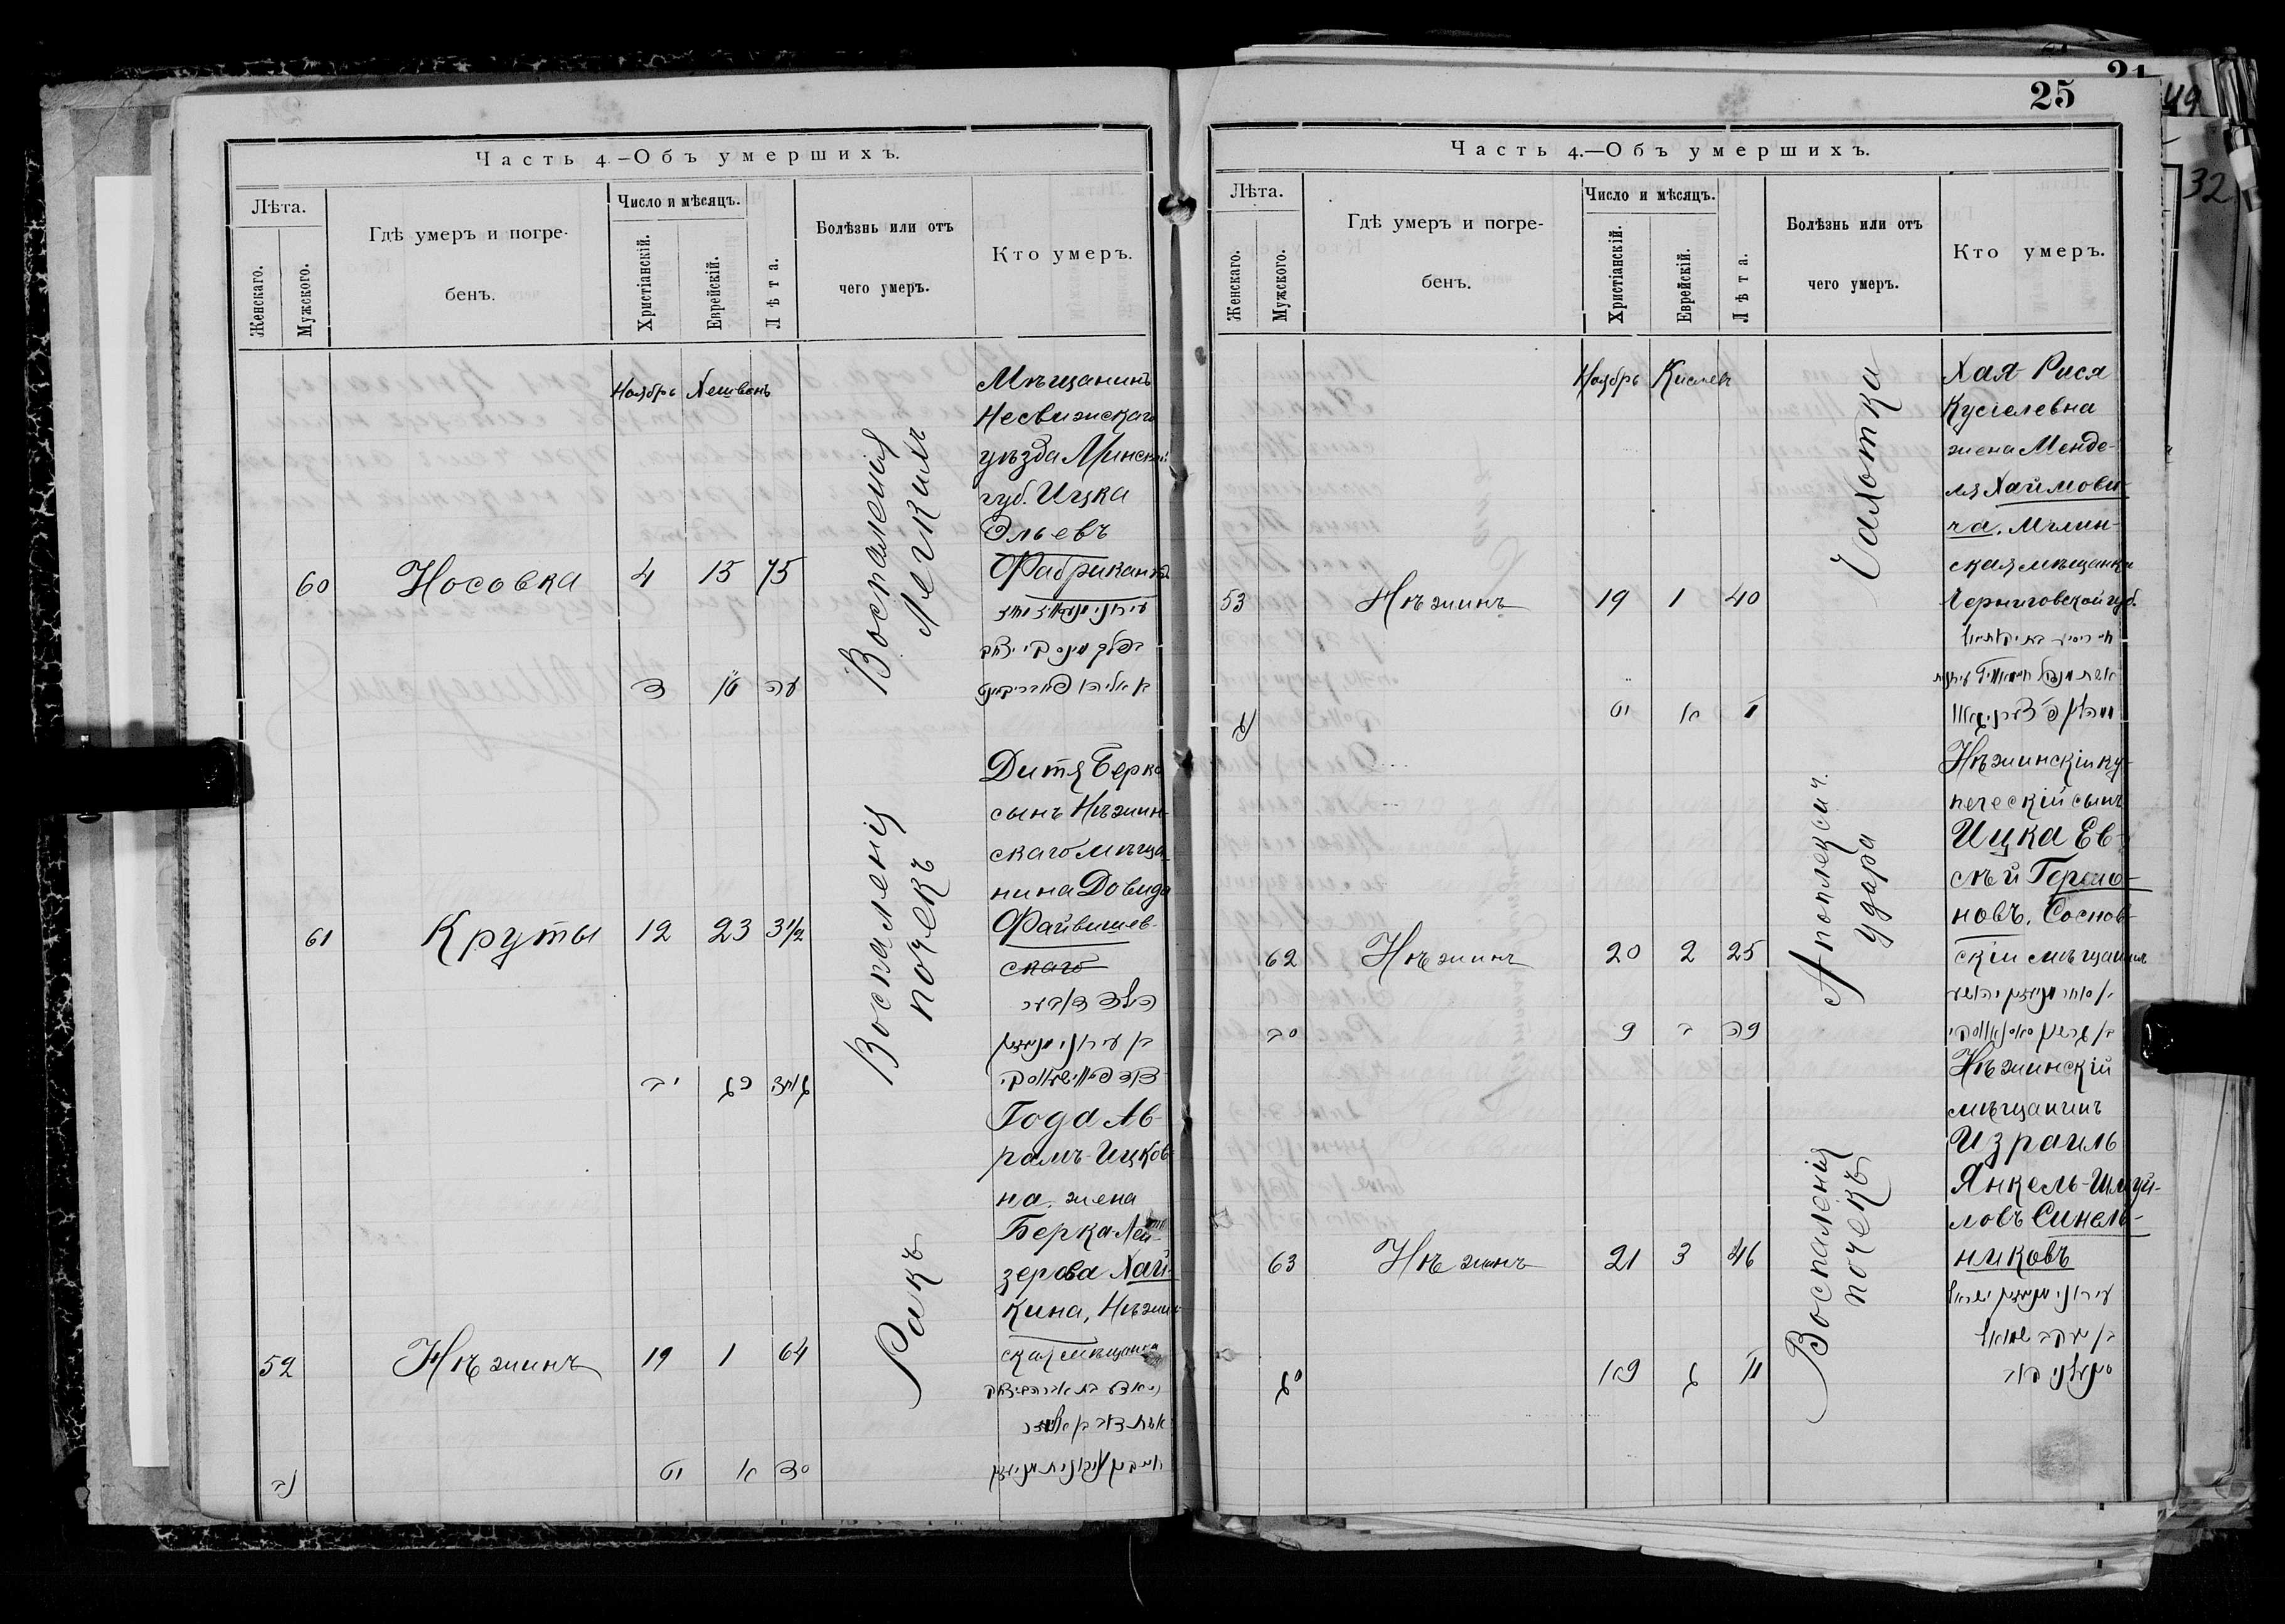 25
49
32
Часть 4.—Объ умершихъ.
Лѣта.
Женскаго.
Мужского.
Гдѣ умеръ и погре-
бенъ.
Число и мѣсяцъ.
Христіанскій.
Еврейскій.
Лѣта.
Болѣзнь или отъ
чего умеръ.
Кто умеръ.
Ноябрь Хешвонъ
60 Носовка 4 15 75
Воспаленія
Легкихъ
Мѣщанинъ
Несвижскаго
уѣзда Минской
губ. Ицка
Эльевъ
Фабрикантъ
ד טו עה
61 Круты 12 23 3½
Воспаленія
почекъ
Дитя Берко
сынъ Нѣжин-
скаго мѣща-
нина Довида
Файвишев-
скаго
הילד
דוב פייווישעווסקי
יב כג
Года Аб-
рамъ-Ицков-
на, жена
Берка Лей-
зерова Хай-
кина, Нѣжин-
ская мѣщанка
52 Нѣжинъ 19 1 64
Ракъ
נב יט א סד
Часть 4.—Объ умершихъ.
Лѣта.
Женскаго.
Мужского.
Гдѣ умеръ и погре-
бенъ.
Число и мѣсяцъ.
Христіанскій.
Еврейскій.
Лѣта.
Болѣзнь или отъ
чего умеръ.
Кто умеръ.
Ноябрь Кислевъ
53 Нѣжинъ 19 1 40
Чахотка
Хая-Рися
Кусіелевна
жена Менде-
ля Хаимови-
ча. Мглин-
ская мѣщанка
Черниговской губ.
נג יט א מ
62 Нѣжинъ 20 2 25
Апоплецсич.
удара
Нѣжинскій ку-
печескій сынъ
Ицка Ев-
сѣй Гершо-
новъ. Соснов-
скій мѣщанинъ
סב כ ב כה
63 Нѣжинъ 21 3 46
Воспаленія
почекъ
Нѣжинскій
мѣщанинъ
Израиль
Янкель-Шмуй-
ловъ Синель-
никовъ
בן יעקב שמואל
סג כא ג מו